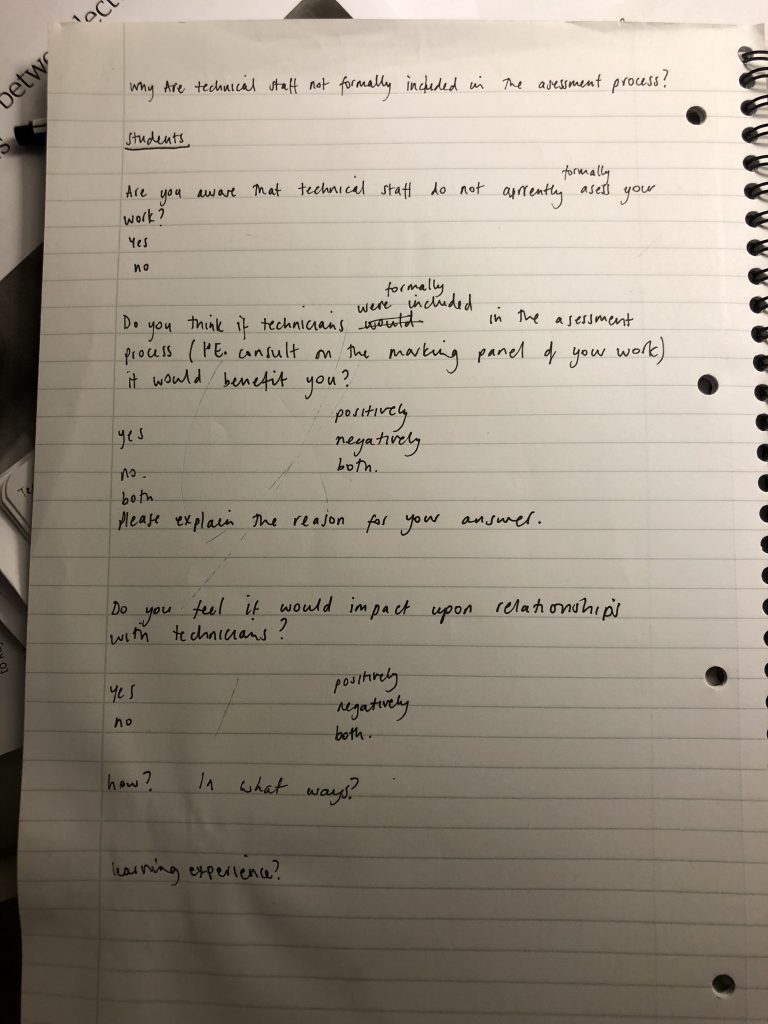 betwe
lect
Why Are technical staff not formally included in The asessment process?
Students
formally
Are you aware that technical staff do not currently asess your
work?
yes
no
formally
were included
Do you think if technicians would in the asessment
process (I.E. consult on the marking panel of your work)
it would benefit you?
positively
yes
negatively
no.
both.
both
Please explain the reason for your answer.
Do you feel it would impact upon relationships
with technicians?
positively
yes
negatively
no
both.
how? In what ways?
learning experience?